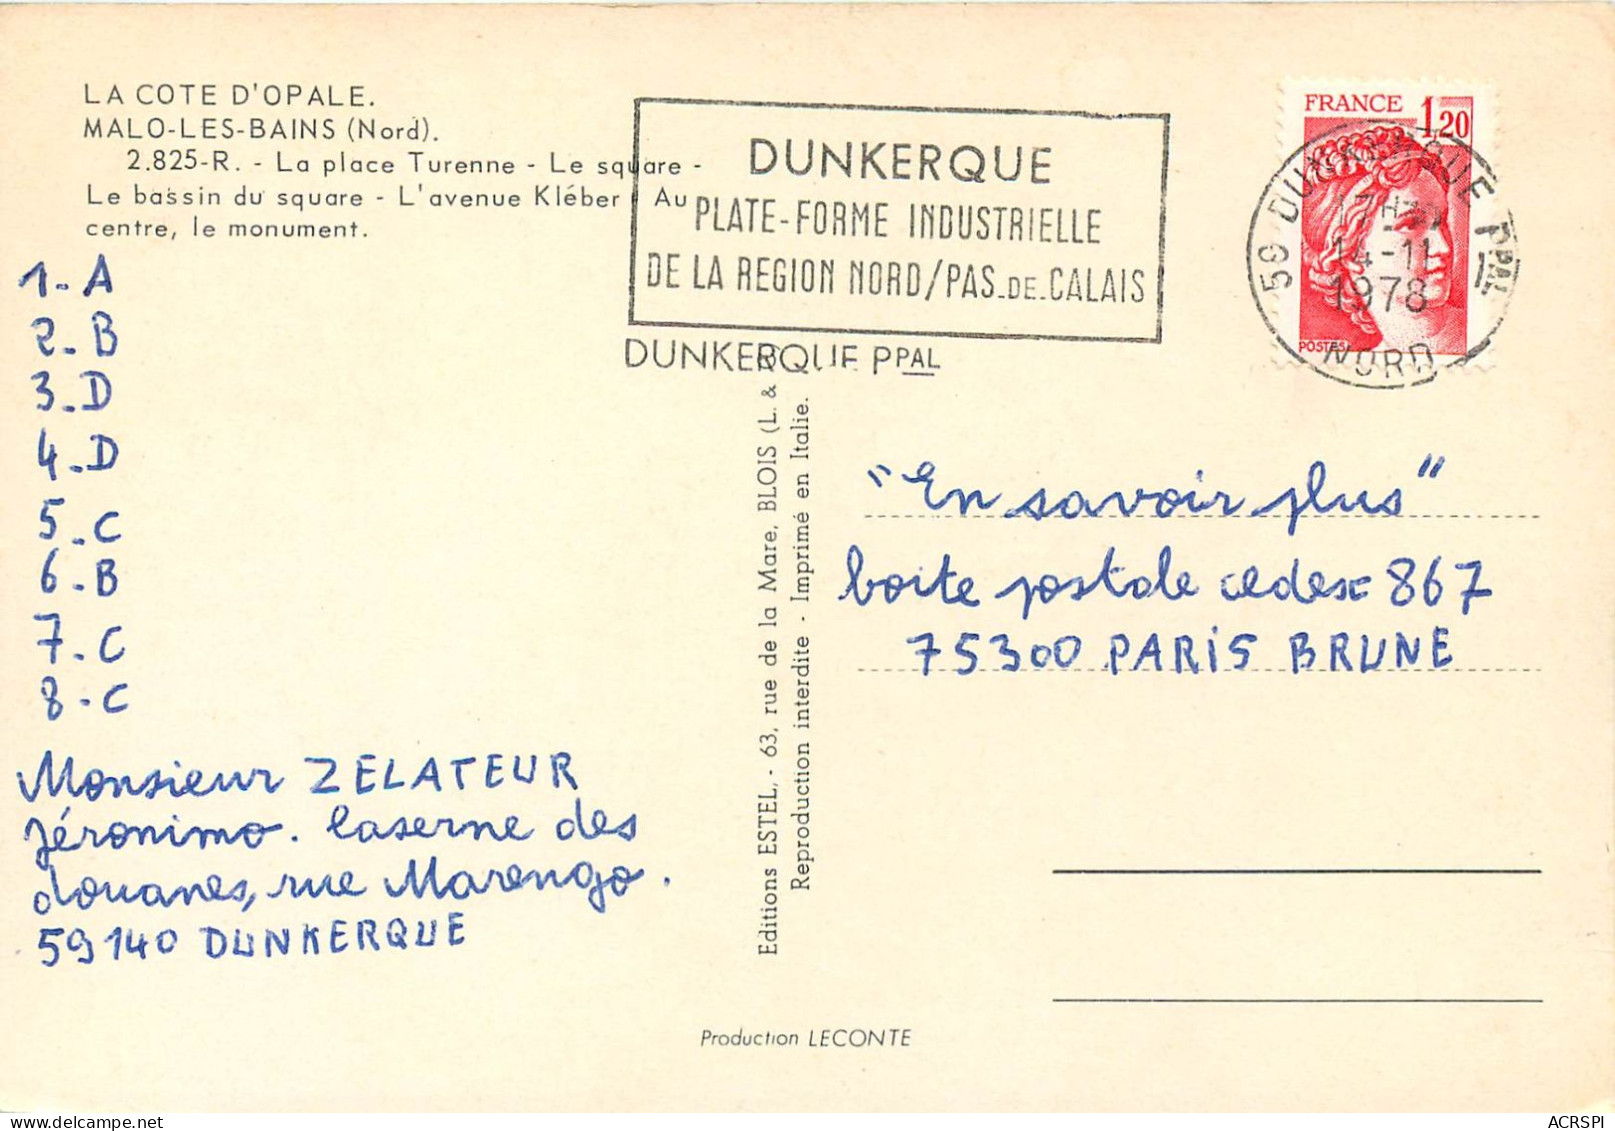 LA COTE D'OPALE.
MALO-LES-BAINS (Nord).
2.825-R. - La place Turenne - Le square -
Le bassin du square - L'avenue Kléber - Au
centre, le monument.
1-A
2-B
3-D
4-D
5-C
6-B
7-C
8-C
Monsieur ZELATEUR
Jéronimo. Caserne des
douanes, rue Marengo.
59140 DUNKERQUE
DUNKERQUE
PLATE-FORME INDUSTRIELLE
DE LA REGION NORD/PAS-DE-CALAIS
DUNKERQUE PPAL
FRANCE 1,20
POSTES
59 DUNKERQUE PPAL
14-11
1978
NORD
Editions ESTEL, - 63, rue de la Mare, BLOIS (L. &
Reproduction interdite - Imprimé en Italie.
"En savoir plus"
boite postale cedex 867
75300 PARIS BRUNE
Production LECONTE
ACRSPI